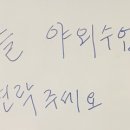 들 야외수업
연락 주세요